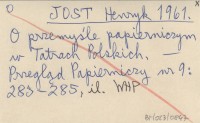 O JOST Henryk 1961.
O przemyśle papierniczym
w Tatrach Polskich. —
Przegląd Papierniczy nr 9:
283-285, il. WHP